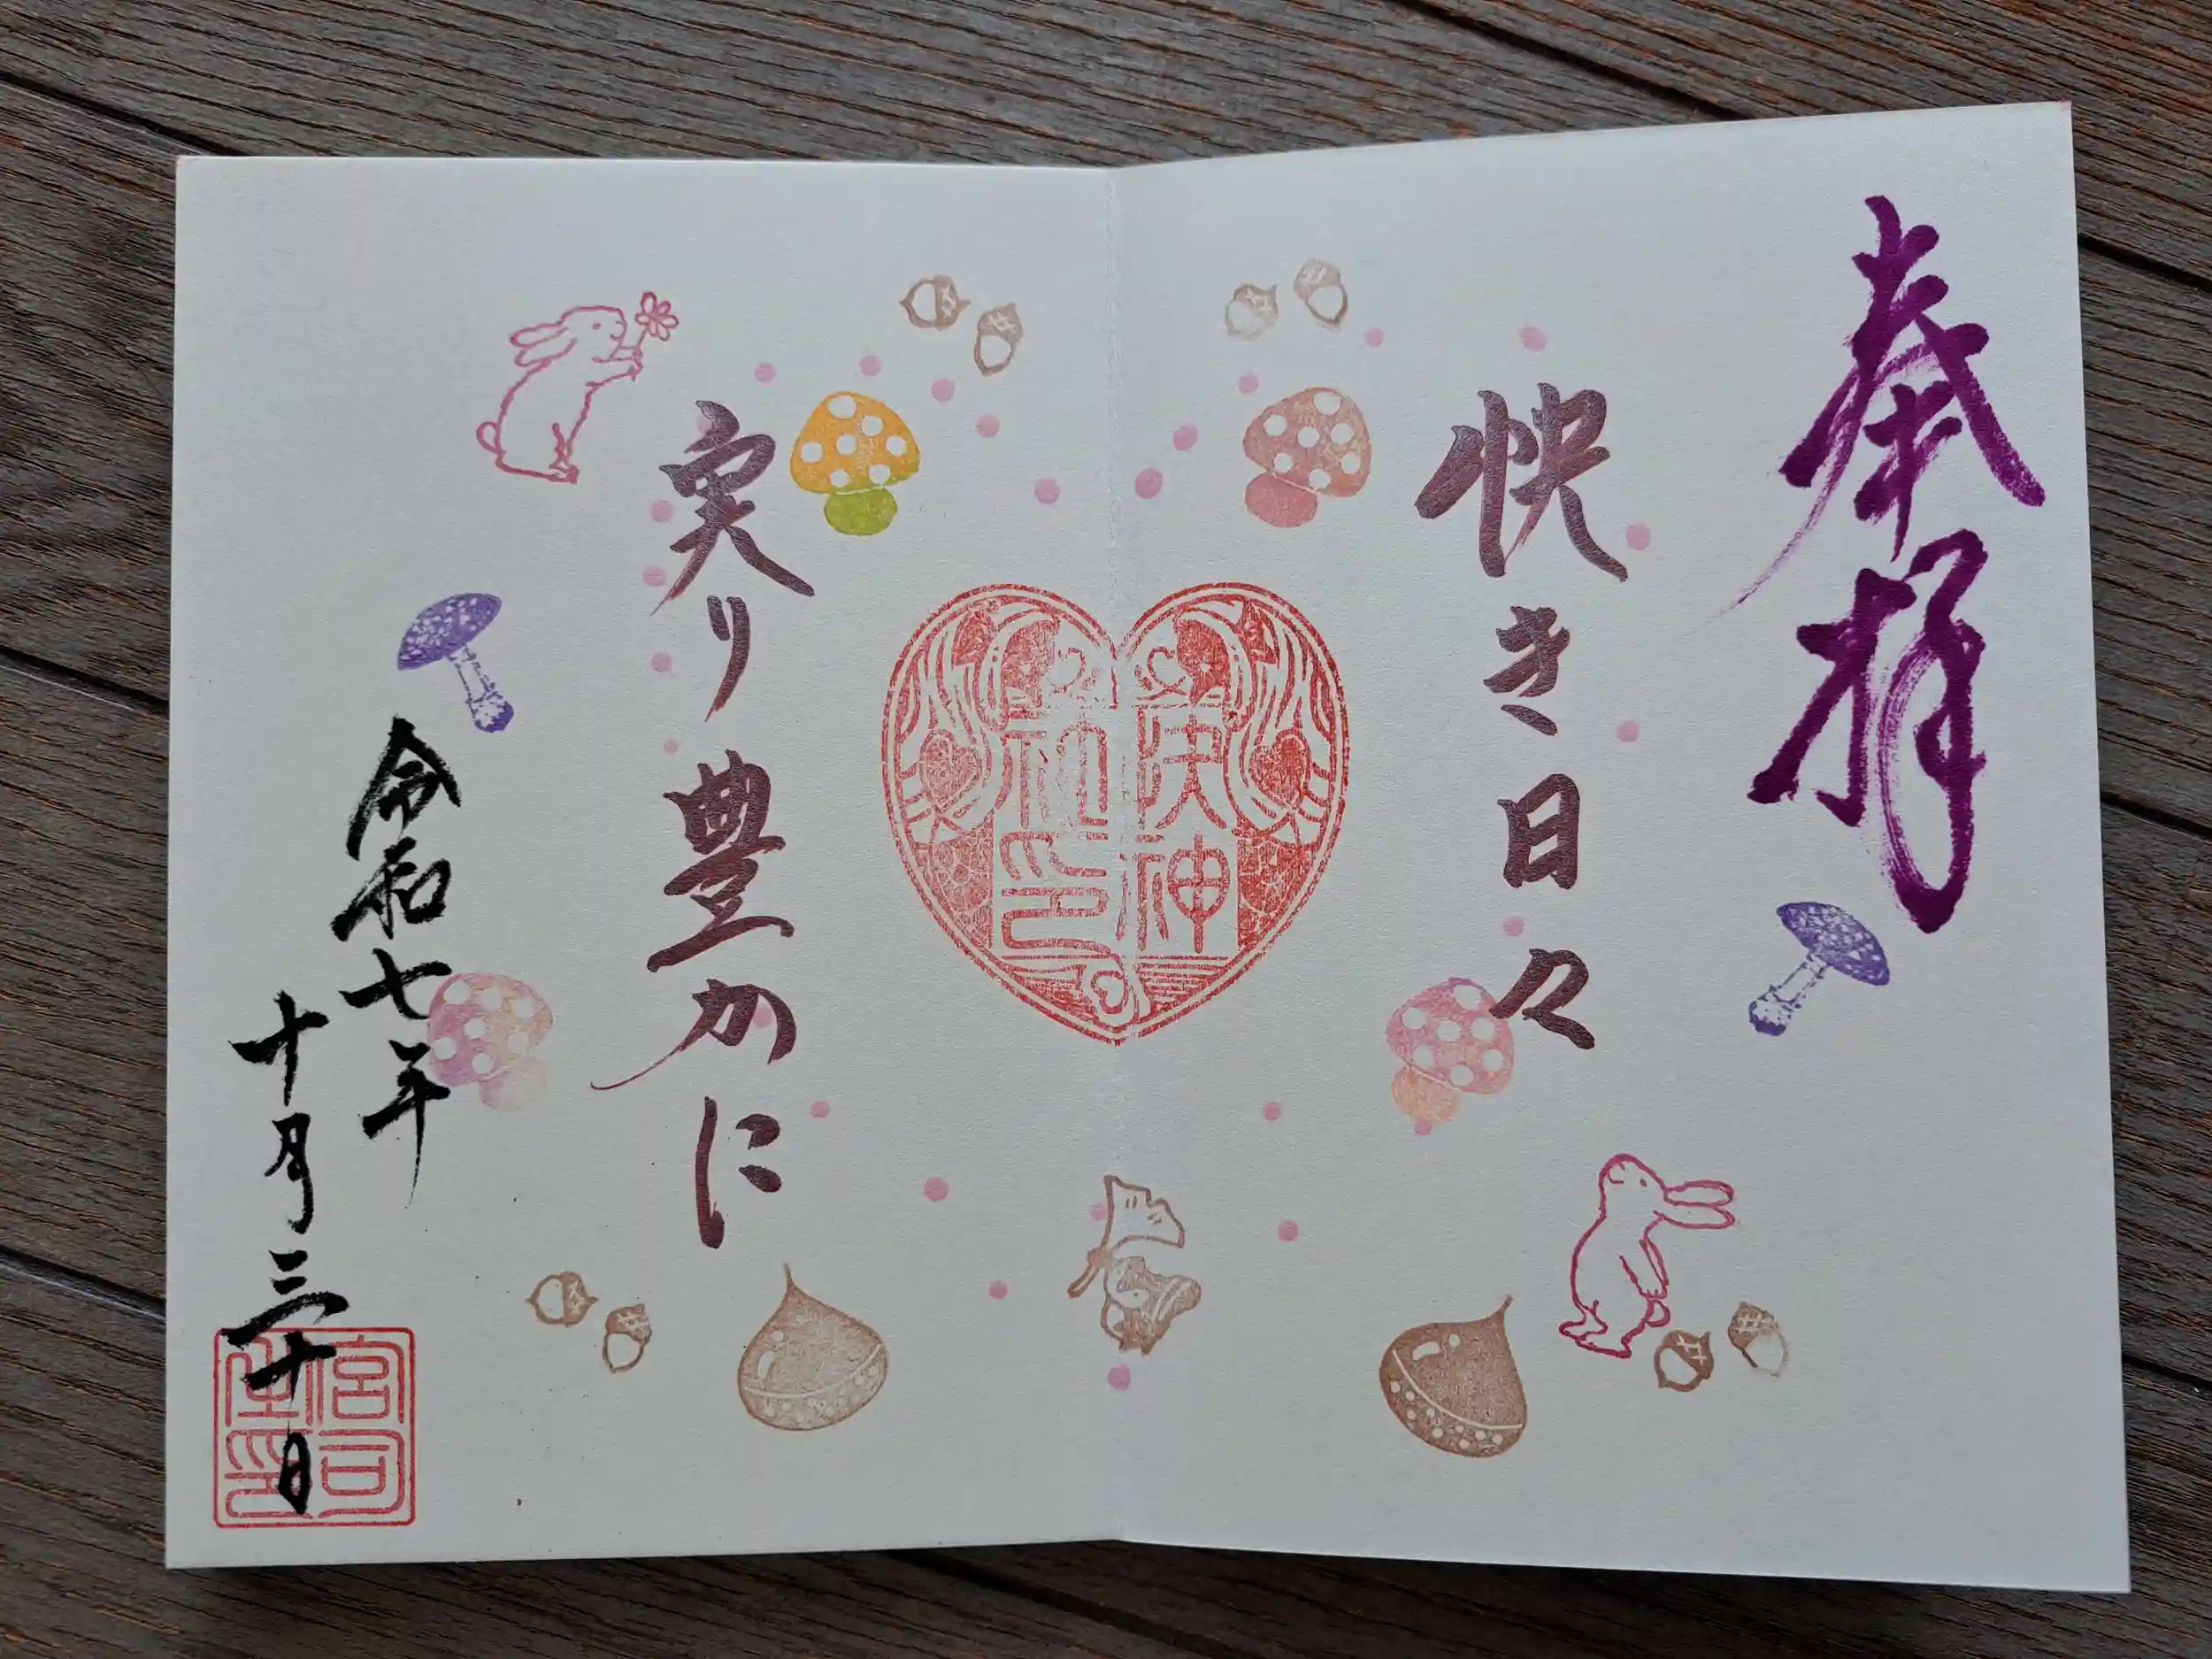 奉拝
快き日々
快神
社印
実り豊かに
令和七年
十月三十日
宮司
之印